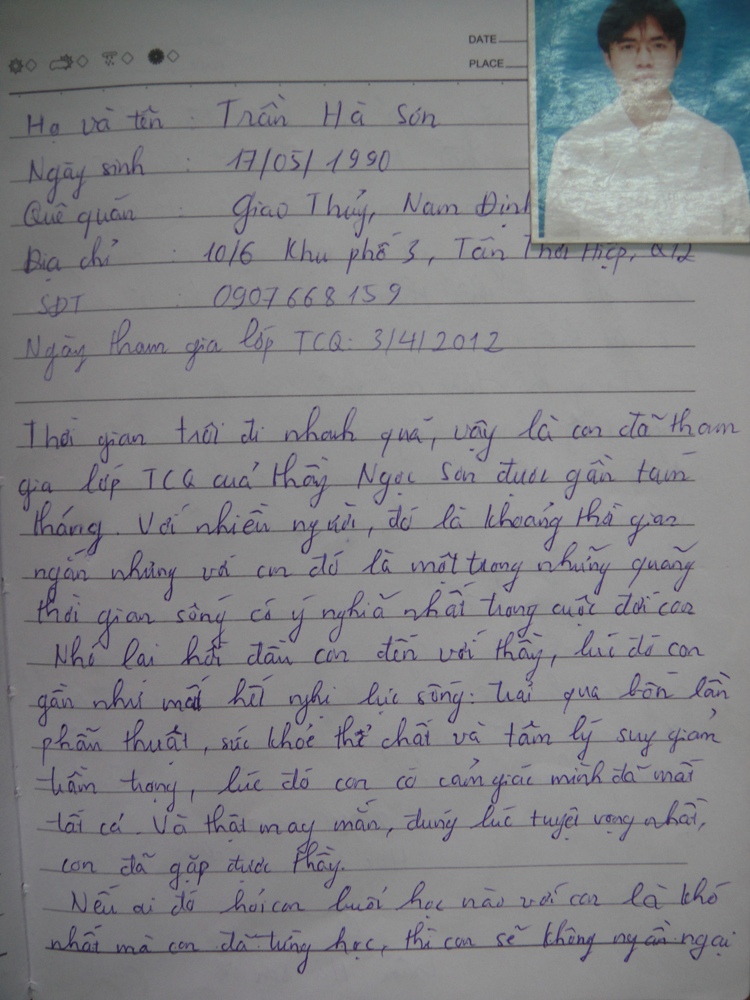 DATE
PLACE
Họ và tên : Trần Hà Sơn
Ngày sinh : 17/05/1990
Quê quán : Giao Thủy, Nam Định
Địa chỉ : 10/6 Khu phố 3, Tân Thới Hiệp, Q12
SĐT : 0907668159
Ngày tham gia lớp TCQ: 3/4/2012
Thời gian trôi đi nhanh quá, vậy là con đã tham
gia lớp TCQ cuả thầy Ngọc Sơn được gần tám
tháng. Với nhiều người, đó là khoảng thời gian
ngắn nhưng với con đó là một trong những quãng
thời gian sống có ý nghiã nhất trong cuộc đời con
Nhớ lại hồi đầu con đến với thầy, lúc đó con
gần như mất hết nghị lực sống: trải qua bốn lần
phẫn thuật, sức khoẻ thể chất và tâm lý suy giảm
trầm trọng, lúc đó con có cảm giác mình đã mất
tất cả. Và thật may mắn, đúng lúc tuyệt vọng nhất,
con đã gặp được Thầy.
Nếu ai đó hỏi con buổi học nào với con là khó
nhất mà con đã từng học, thì con sẽ không ngần ngại